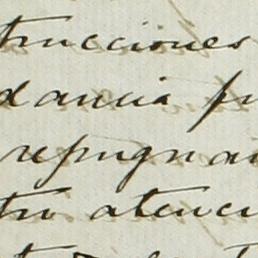 trucciones
dancia pr
repugnan
tro atenci